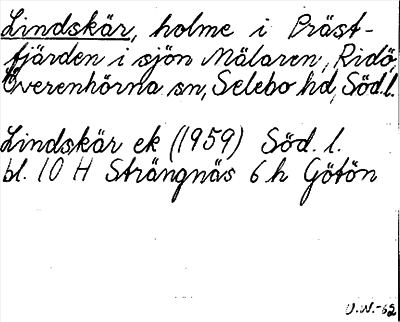 Lindskär, holme i Präst-
fjärden i sjön Mälaren, Ridö,
Överenhörna sn, Selebo hd, Södl.
Lindskär ek (1959) Söd. l.
bl. 10 H Strängnäs 6 h Götön
U.W.-62